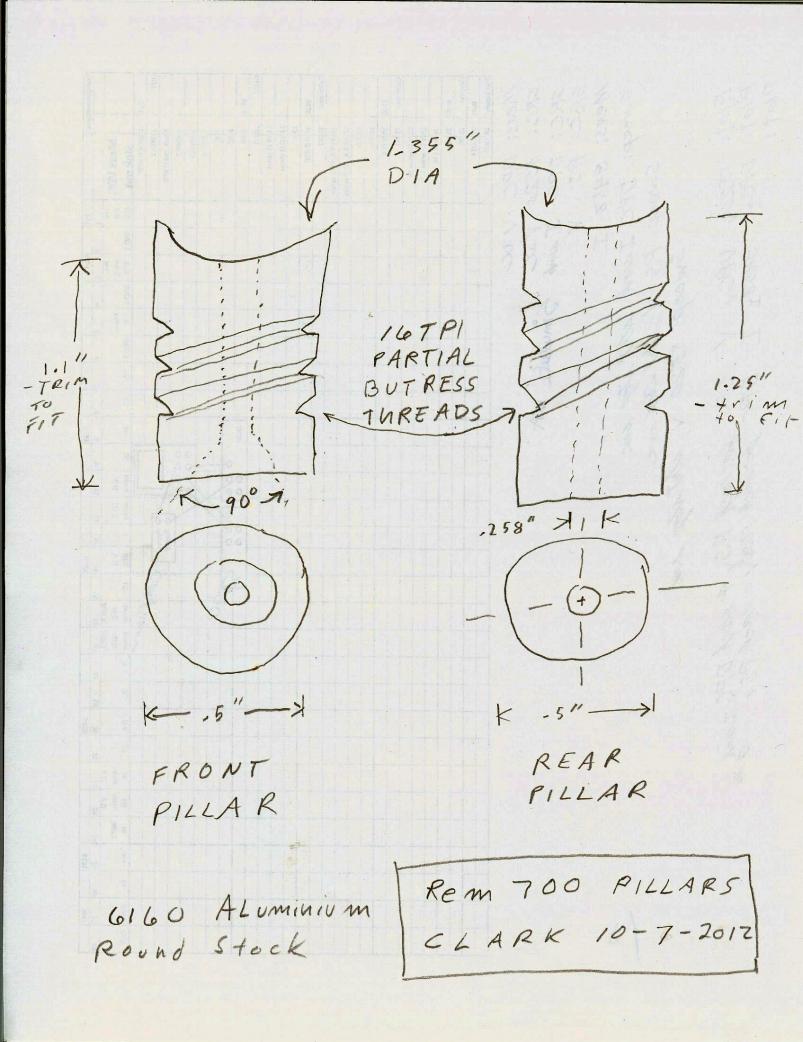 1.355"
DIA
16 TPI
PARTIAL
BUTRESS
THREADS
1.1"
-TRIM
TO
FIT
1.25"
- trim
to fit
90°
.258"
+
.5"
.5"
FRONT
PILLAR
REAR
PILLAR
6160 ALuminium
Round Stock
Rem 700 PILLARS
CLARK 10-7-2012